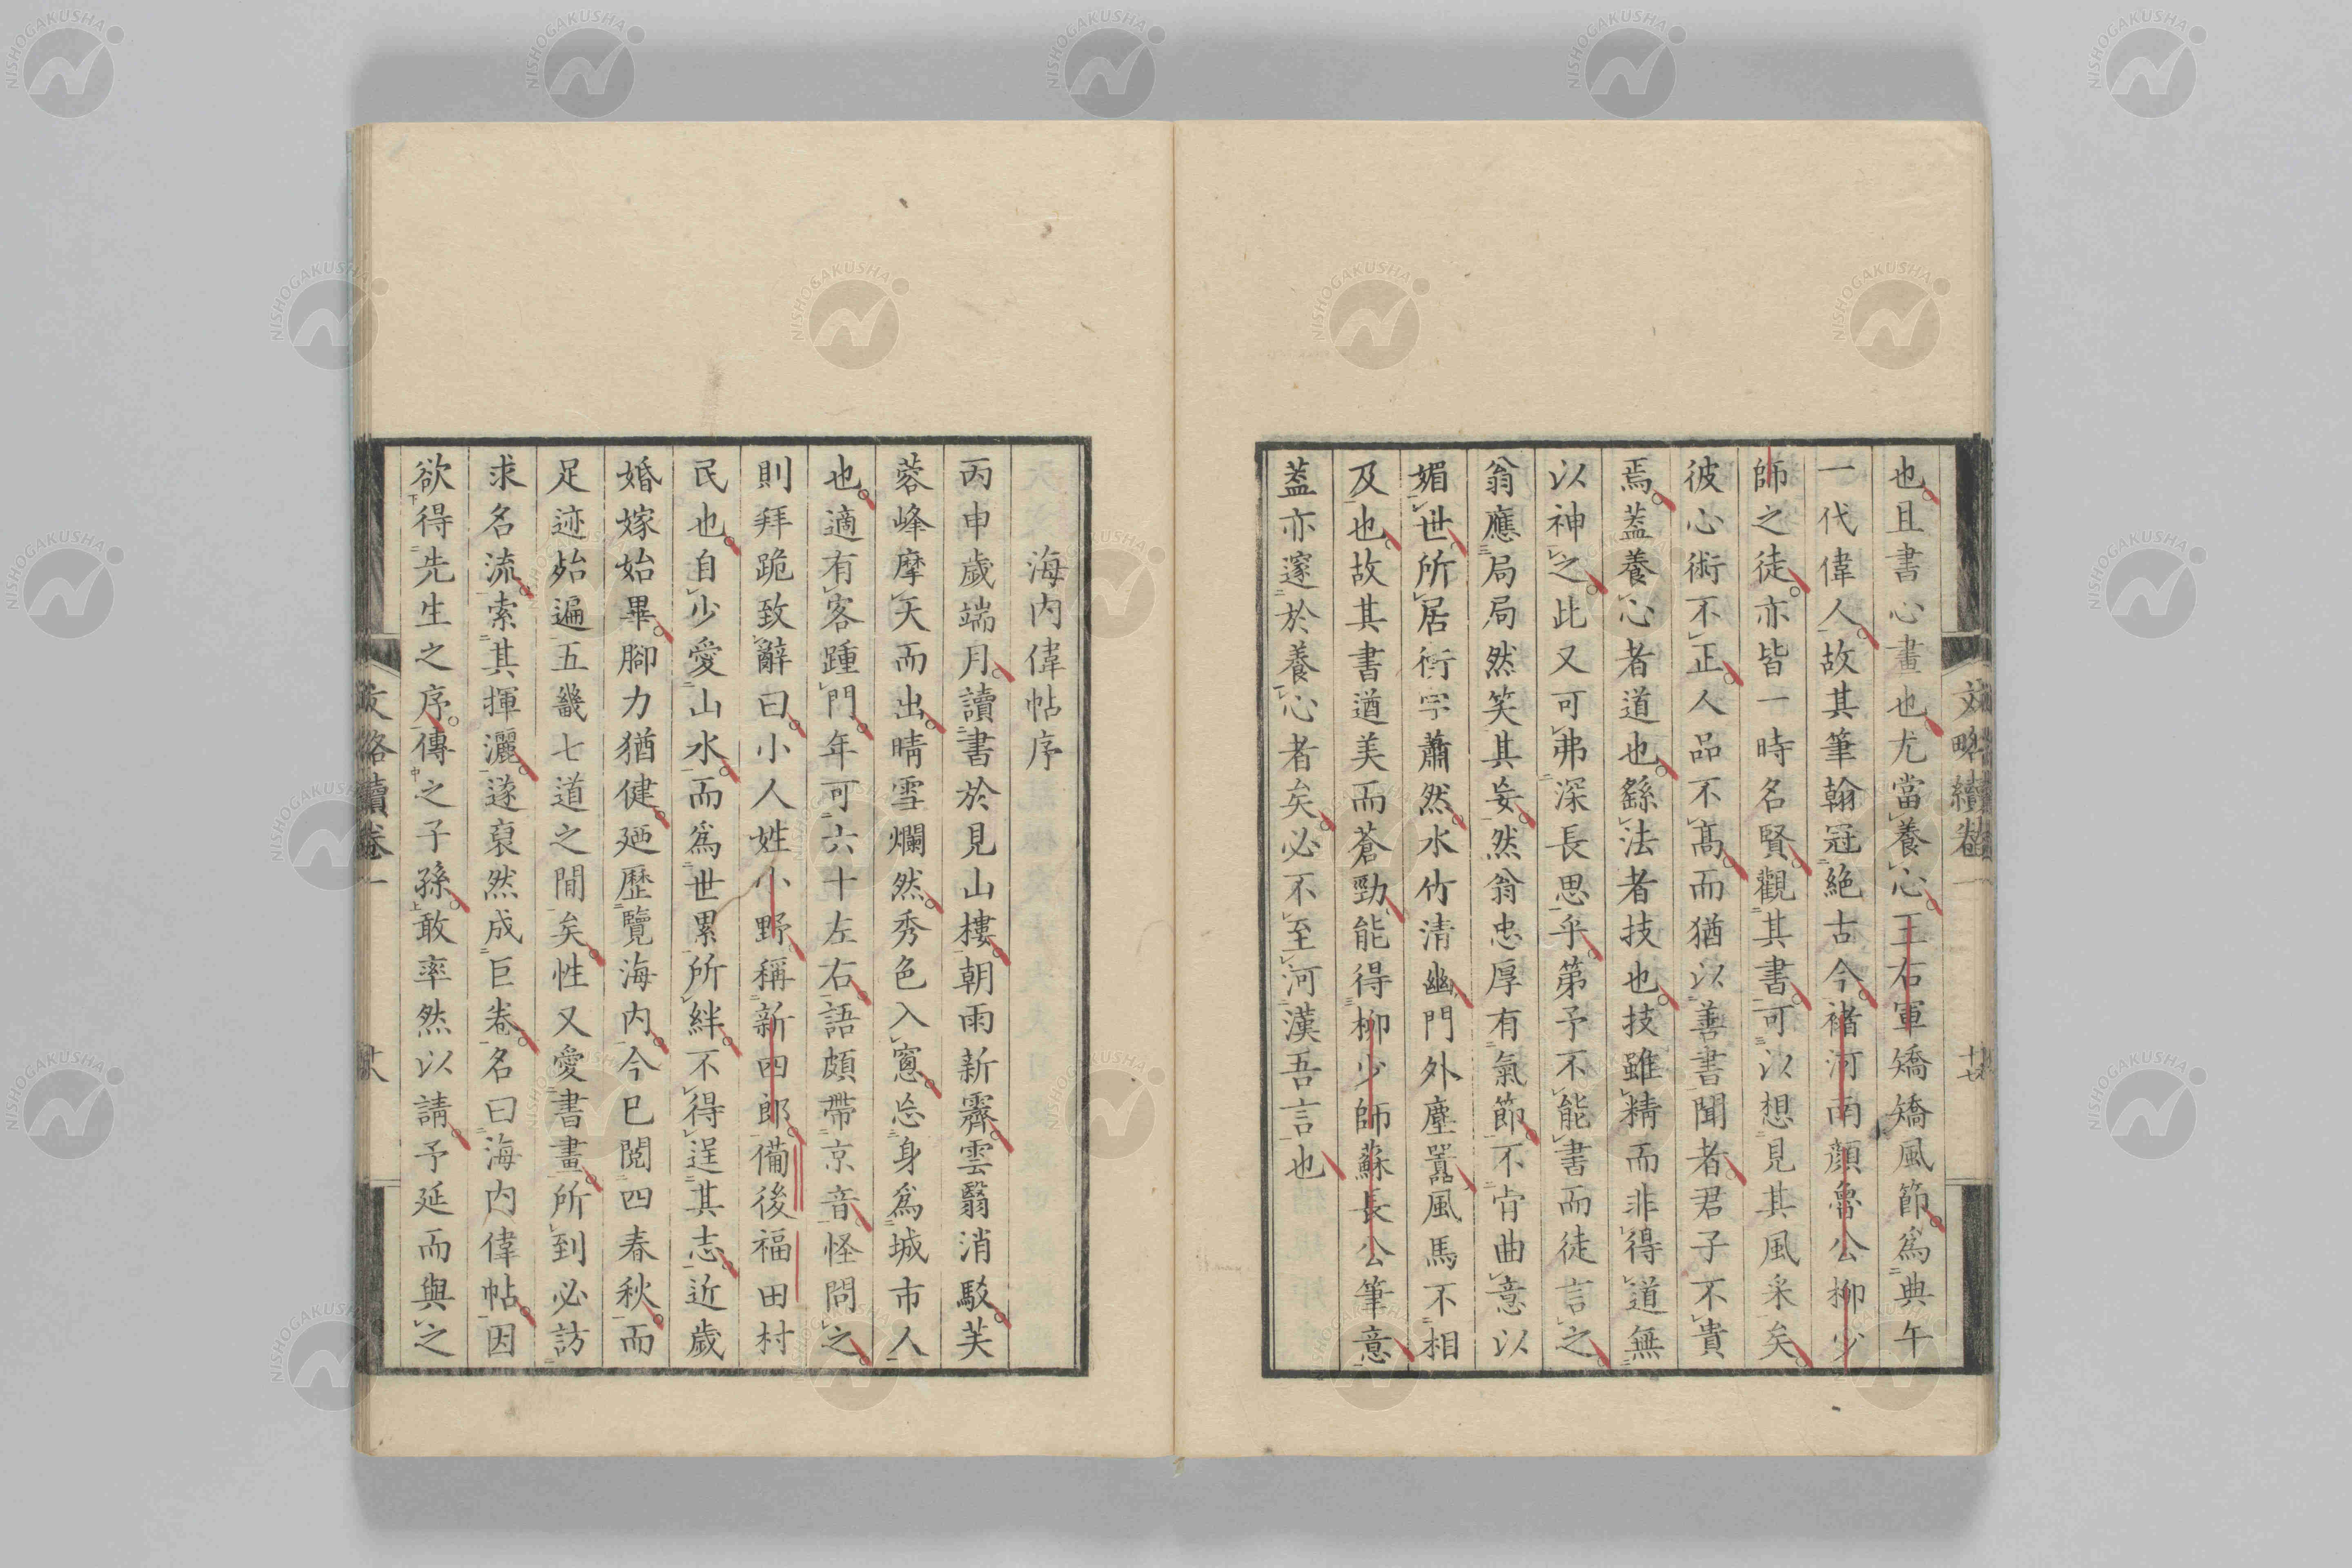 也且書心畫也尤當養心王右軍矯矯風節爲典午
一代偉人故其筆翰冠絶古今褚河南顔魯公柳少
師之徒亦皆一時名賢觀其書可以想見其風采矣
彼心術不正人品不髙而猶以善書聞者君子不貴
焉葢養心者道也繇法者技也技雖精而非得道無
以神之此又可弗深長思乎第予不能書而徒言之
翁應局局然笑其妄然翁忠厚有氣節不肯曲意以
媚世所居衡宇蕭然水竹清幽門外塵囂風馬不相
及也故其書遒美而蒼勁能得柳少師蘇長公筆意
葢亦邃於養心者矣必不至河漢吾言也
文略續卷一
十七
海内偉帖序
丙申歳端月讀書於見山樓朝雨新霽雲翳消駁芙
蓉峰摩天而出晴雪爛然秀色入窻忘身爲城市人
也適有客踵門年可六十左右語頗帶京音怪問之
則拜跪致辭曰小人姓小野稱新四郎備後福田村
民也自少愛山水而爲世累所絆不得逞其志近歳
婚嫁始畢腳力猶健廼歷覽海内今已閲四春秋而
足迹殆遍五畿七道之間矣性又愛書畫所到必訪
求名流索其揮灑遂裒然成巨卷名曰海内偉帖因
欲得先生之序傳之子孫敢率然以請予延而與之
文略續卷一
NISHOGAKUSHA